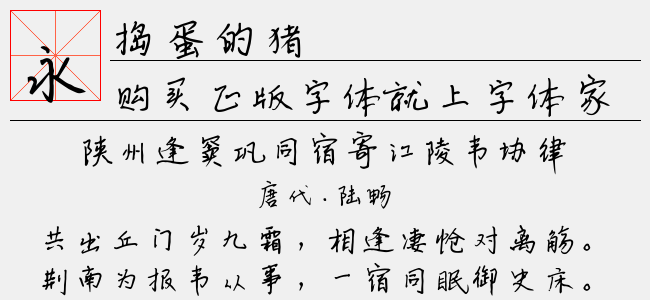 永
捣蛋的猪
购买正版字体就上字体家
陕州逢窦巩同宿寄江陵韦协律
唐代.陆畅
共出丘门岁九霜，相逢凄怆对离觞。
荆南为报韦从事，一宿同眠御史床。